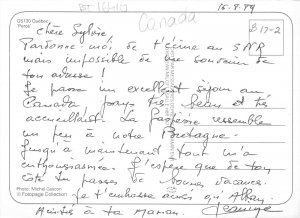 BT 164107
Canada
15.8.99
CS133 Québec
Percé
B 17-2
Chère Sylvie
Pardonne-moi, de t'écrire au SNR
mais impossible de me souvenir de
ton adresse !
Je passe un excellent séjour au
Canada pays très beau et très
accueillant. La Gaspésie ressemble
un peu à notre Bretagne.
Jusqu'à maintenant tout m'a
enthousiasmée. J'espère que de ton
côté tu passes de bonnes vacances.
Je t'embrasse ainsi qu'
Amitiés à ta Maman.
Photo: Michel Gascon
© Fotopage Collection